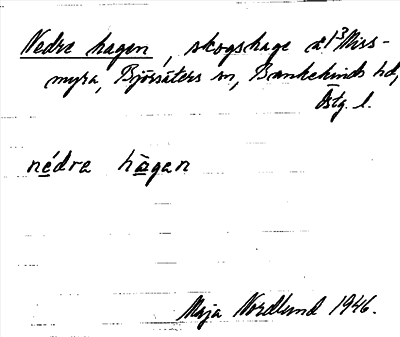 Nedre hagen, skogshage å 1³ Miss-
myra, Björsäters sn, Bankekinds hd,
Östg. l.
nédra hàgan
Maja Nordlund 1946.